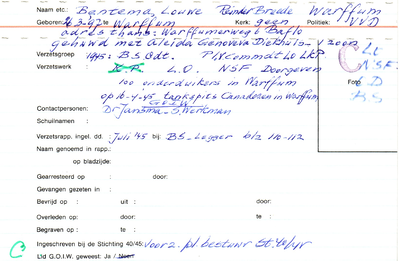 Naam etc.: Bantema, Louwe Brede Warffum
Geboren: te Warffum Kerk: geen Politiek: VVD
adres thans: Warffumerweg 6 Baflo
gehuwd met Aleida Genoveva 1 zoon
Verzetsgroep 1945: B.S. Cdt.
Verzetswerk K.P. L.O. NSF Doorgeven
100 onderduikers in Warffum
op 16-4-45 tankspits Canadezen in Warffum
Contactpersonen: Dr Jansma - S. Workman
Schuilnamen :
Verzetsrapp. ingel. dd. : Juli '45 bij: BS-Legger blz 110-112
Naam genoemd in rapp.:
op bladzijde:
Gearresteerd op : door:
Gevangen gezeten in :
Bevrijd op : uit : door:
Overleden op: door: te :
Begraven op : te :
Ingeschreven bij de Stichting 40/45: voorz. pl. bestuur St. 40/45
Lid G.O.I.W. geweest: Ja / Neen
C
Foto
LO
NSF
LD
BS